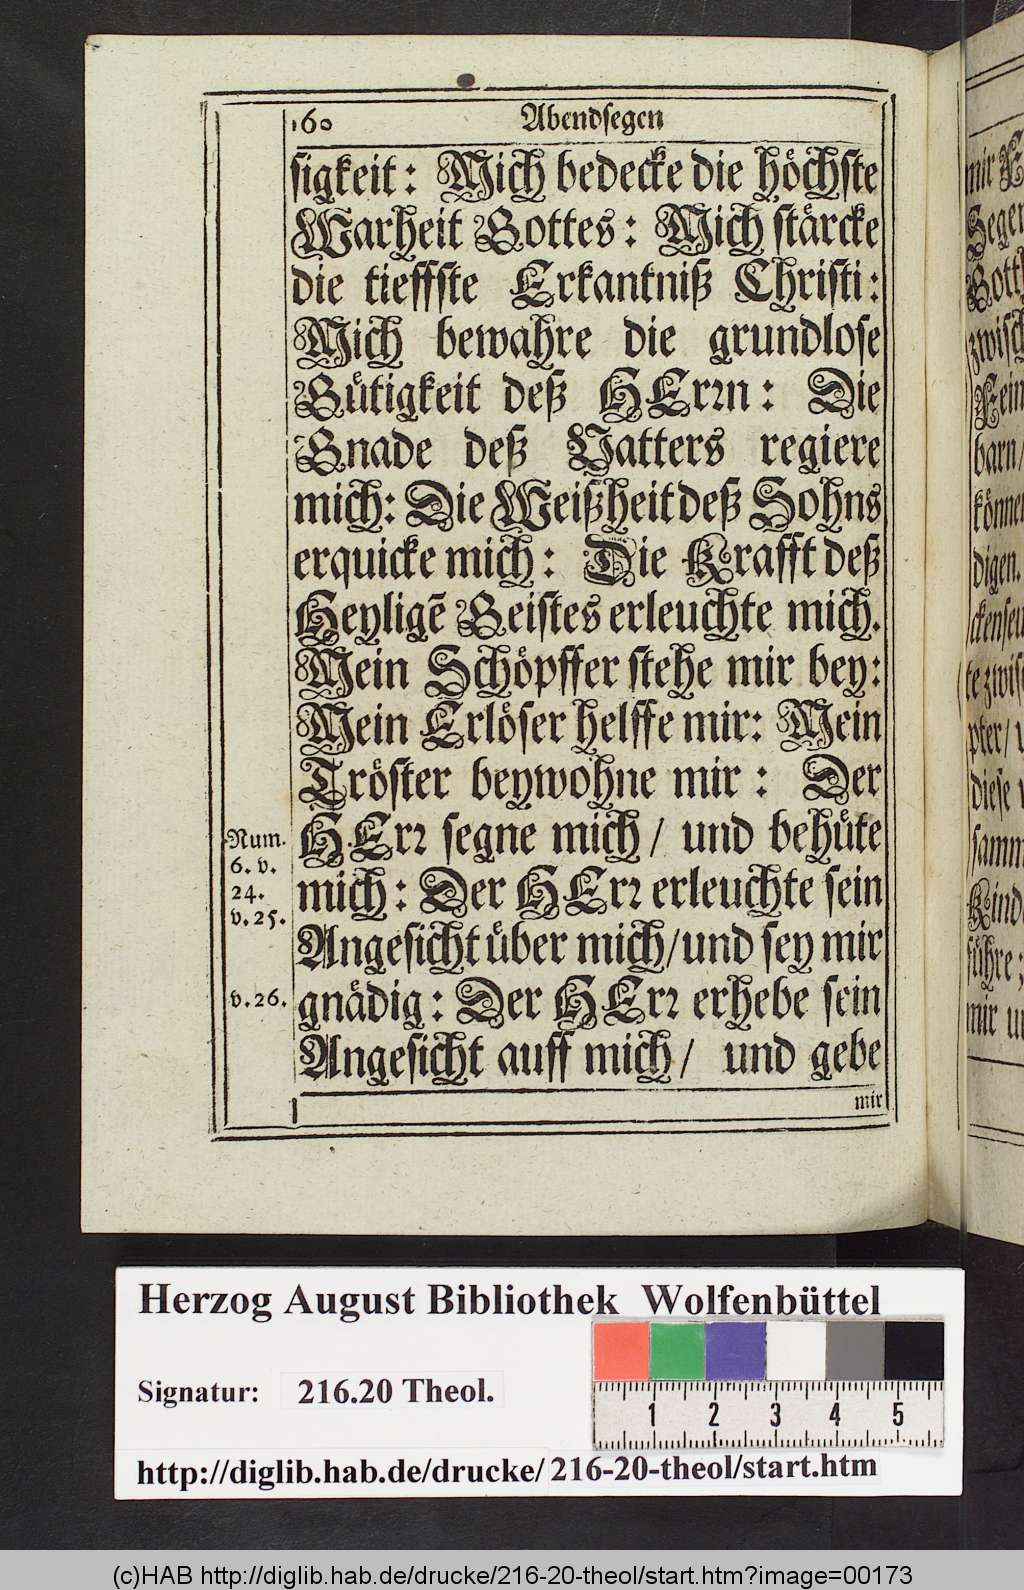 160 Abendsegen
sigkeit: Mich bedecke die höchste
Warheit Gottes: Mich stärcke
die tieffste Erkantniß Christi:
Mich bewahre die grundlose
Gütigkeit deß HErꝛn: Die
Gnade deß Vatters regiere
mich: Die Weißheit deß Sohns
erquicke mich: Die Krafft deß
Heyligē Geistes erleuchte mich.
Mein Schöpffer stehe mir bey:
Mein Erlöser helffe mir: Mein
Tröster beywohne mir: Der
HErꝛ segne mich/ und behüte
Num.
6. v.
24.
mich: Der HErꝛ erleuchte sein
v. 25.
Angesicht über mich/und sey mir
v. 26.
gnädig: Der HErꝛ erhebe sein
Angesicht auff mich/ und gebe
mir
mir
Segen
Gott
zwisch
Fein
barn/
können
digen.
te zwis
pter/
diese
samm
Kind
führe;
mir un
Herzog August Bibliothek Wolfenbüttel
Signatur: 216.20 Theol.
1 2 3 4 5
http://diglib.hab.de/drucke/216-20-theol/start.htm
(c)HAB http://diglib.hab.de/drucke/216-20-theol/start.htm?image=00173